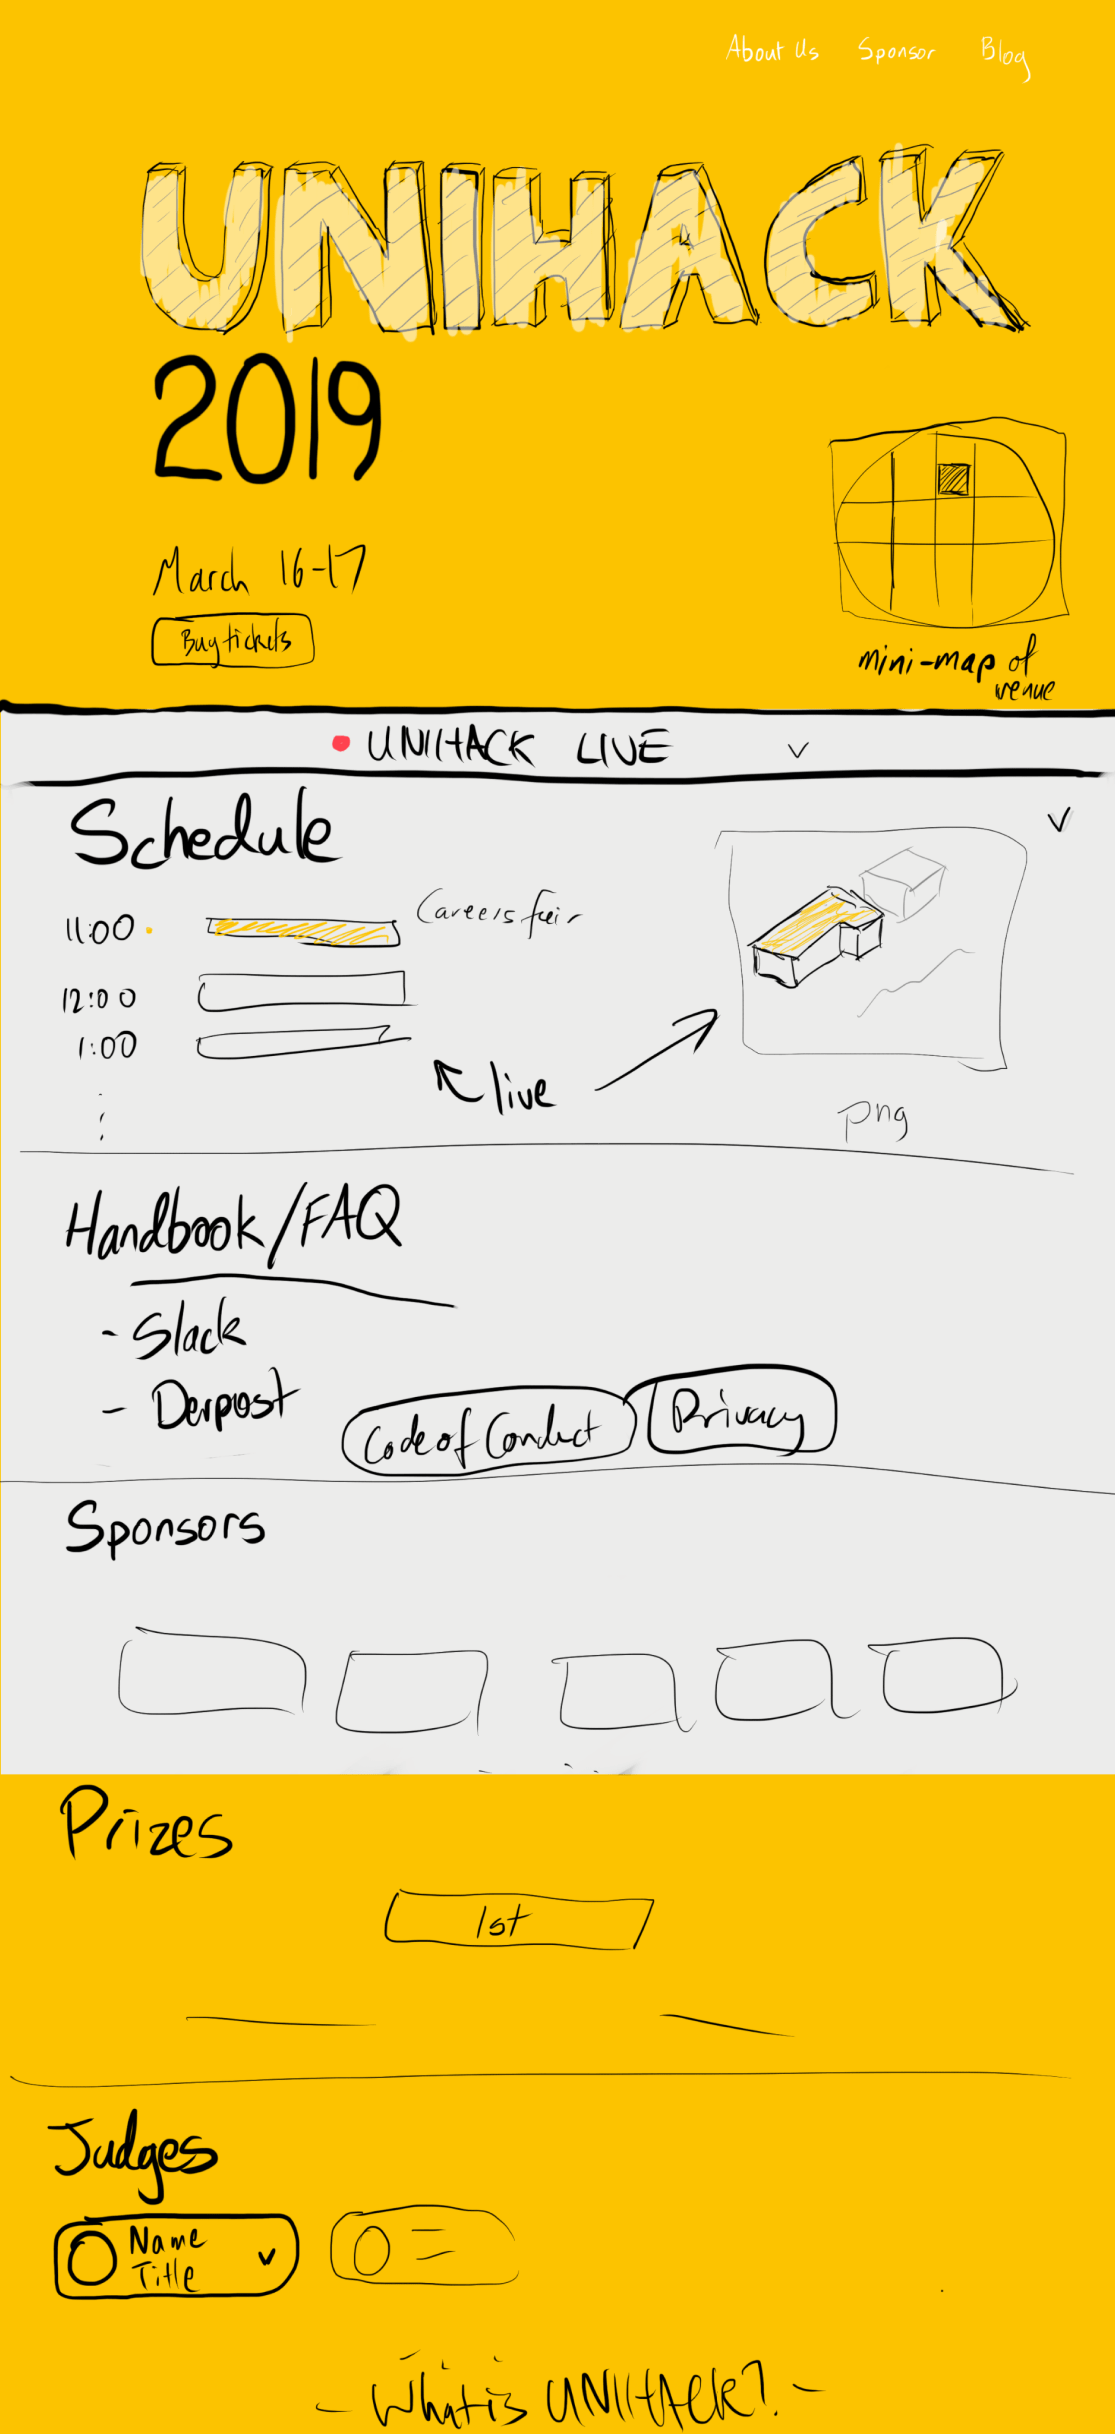 About Us Sponsor Blog
UNIHACK
2019
March 16-17
Buy tickets
mini-map of
venue
UNIHACK LIVE
Schedule
11:00
Careers fair
12:00
1:00
live
png
Handbook/FAQ
- Slack
- Devpost
Code of Conduct
Privacy
Sponsors
Prizes
1st
Judges
Name
Title
- What is UNIHACK? -